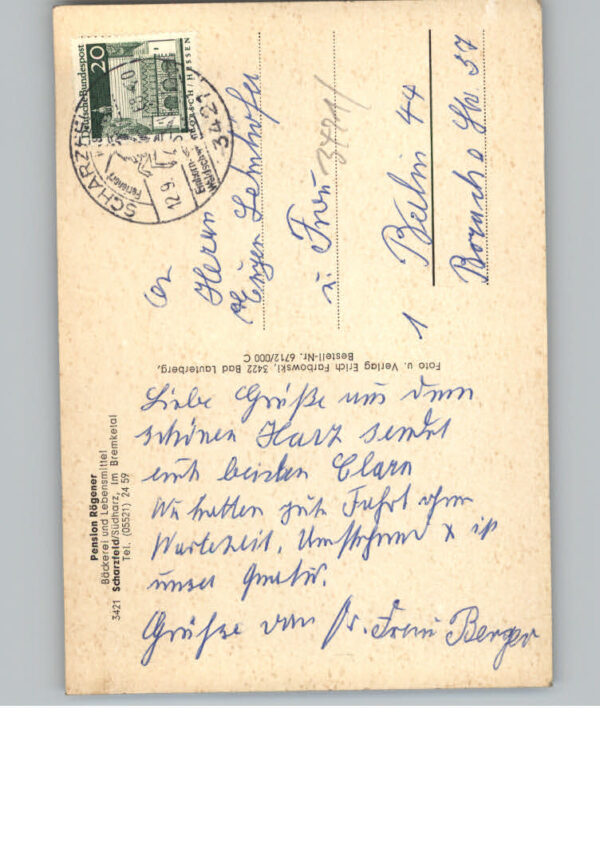 Deutsche Bundespost
20
LORSCH / HESSEN
SCHARZFELD
3421
12.9.
Ferienort
An
Herrn
u. Frau
1 Berlin 44
Foto u. Verlag Erich Farbowski, 3422 Bad Lauterberg,
Bestell-Nr. 6712/000 C
Pension Rögener
Bäckerei und Lebensmittel
3421 Scharzfeld/Südharz, Im Bremketal
Tel. (05521) 24 59
Liebe Grüße aus dem
schönen Harz sendet
euch beiden Clara
Wir hatten gute Fahrt ohne
Wartezeit, x ist
unser
Grüße von Frau Berger